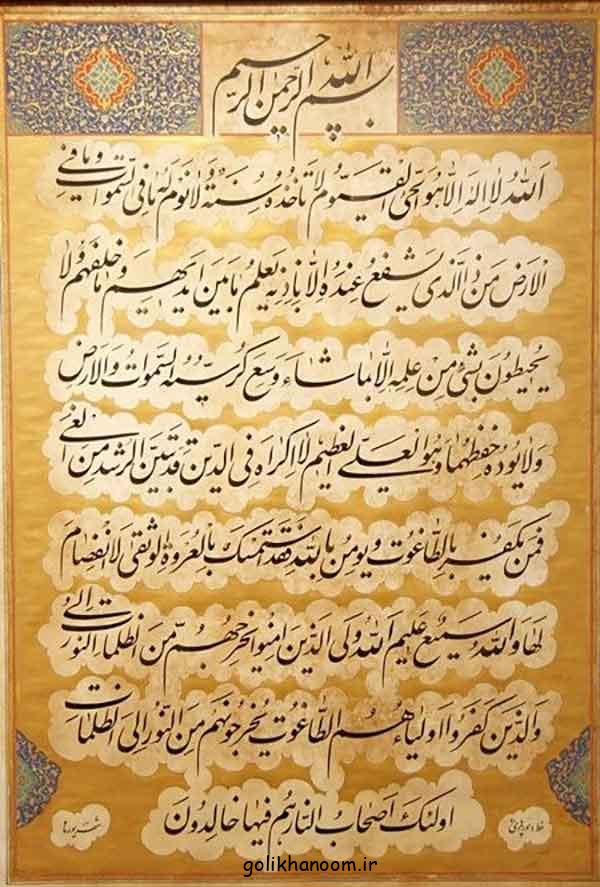 بسم الله الرحمن الرحیم
اَللهُ لا اِلهَ اِلّا هُوَ الحَیُّ القَیُّومُ لا تَاخُذُهُ سِنَةٌ وَلا نَومٌ لَهُ ما فِی السَّمواتِ وَما فِی
الاَرضِ مَن ذَا الَّذی یَشفَعُ عِندَهُ اِلّا بِاِذنِهِ یَعلَمُ ما بَینَ اَیدیهِم وَ ما خَلفَهُم وَلا
یُحیطُونَ بِشَیءٍ مِن عِلمِهِ اِلّا بِما شاءَ وَسِعَ کُرسِیُّهُ السَّمواتِ وَالاَرضَ
وَلا یَودُهُ حِفظُهُما وَهُوَ العَلِیُّ العَظیم لا اِکراهَ فِی الدّینِ قَد تَبَیَّنَ الرُّشدُ مِنَ الغَیِّ
فَمَن یَکفُر بِالطّاغُوتِ وَ یُومِن بِاللهِ فَقَد استَمسَکَ بِالعُروَةِ الوُثقی لاَ انفِصامَ
لَها وَاللهُ سَمیعٌ عَلیم اَللهُ وَلِیُّ الَّذینَ امَنُوا یُخرِجُهُم مِنَ الظُّلُماتِ اِلَی النُّورِ
وَالَّذینَ کَفَرُوا اَولِیاءُهُمُ الطّاغُوتُ یُخرِجُونَهُم مِنَ النُّورِ اِلَی الظُّلُماتِ
اولئِکَ اَصحابُ النّارِ هُم فیها خالِدُونَ
golikhanoom.ir